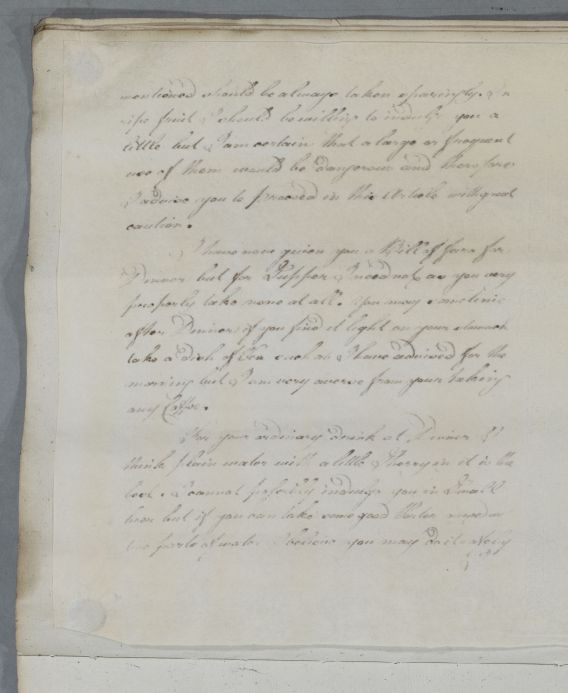 mentioned should be always taken sparingly. In
ripe fruit I should be willing to indulge you a
little but I am certain that a large or frequent
use of them would be dangerous and therefore
I advise you to proceed in this Article with great
caution.
I have now given you a Bill of fare for
Dinner but for Supper I need not as you very
properly take none at all. You may sometimes
after Dinner if you find it light on your stomach
take a dish of Tea such as I have advised for the
morning but I am very averse from your taking
any Coffee.
For your ordinary drink at Dinner I
think plain water with a little Sherry in it is the
best. I cannot perfectly indulge you in Small
beer but if you can take some good Porter mixed in
two parts of water I believe you may do it safely